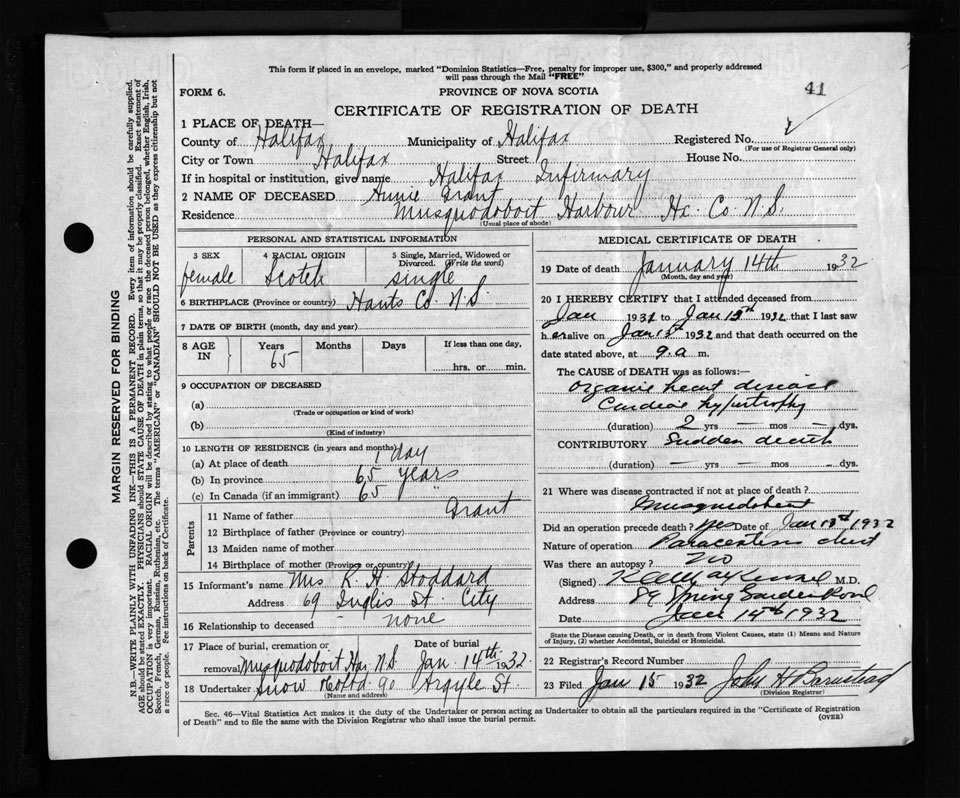 This form if placed in an envelope, marked "Dominion Statistics—Free, penalty for improper use, $300," and properly addressed
will pass through the Mail "FREE"
FORM 6.
PROVINCE OF NOVA SCOTIA
41
CERTIFICATE OF REGISTRATION OF DEATH
1 PLACE OF DEATH—
County of Halifax Municipality of Halifax Registered No.
(For use of Registrar General only)
City or Town Halifax Street House No.
If in hospital or institution, give name Halifax Infirmary
2 NAME OF DECEASED Annie Grant
Residence Musquodoboit Harbour Hx. Co. N.S.
(Usual place of abode)
PERSONAL AND STATISTICAL INFORMATION
3 SEX 4 RACIAL ORIGIN 5 Single, Married, Widowed or
Divorced. (Write the word)
female Scotch single
6 BIRTHPLACE (Province or country) Hants Co. N.S.
7 DATE OF BIRTH (month, day and year)
8 AGE IN Years Months Days If less than one day,
65 hrs. or min.
9 OCCUPATION OF DECEASED
(a)
(Trade or occupation or kind of work)
(b)
(Kind of industry)
10 LENGTH OF RESIDENCE (in years and months)
(a) At place of death 1 day
(b) In province 65 years
(c) In Canada (if an immigrant) 65 "
Parents
11 Name of father Grant
12 Birthplace of father (Province or country)
13 Maiden name of mother
14 Birthplace of mother (Province or country)
15 Informant's name Mrs R. H. Stoddard
Address 69 Inglis St. City
16 Relationship to deceased none
17 Place of burial, cremation or Date of burial
removal Musquodoboit Har. N.S. Jan. 14th 1932
18 Undertaker Snow 90 Argyle St.
(Name and address)
MEDICAL CERTIFICATE OF DEATH
19 Date of death January 14th 1932
(Month, day and year)
20 I HEREBY CERTIFY that I attended deceased from
Jan 1932 to Jan 13th 1932 that I last saw
her alive on Jan 13th 1932 and that death occurred on the
date stated above, at 9.a m.
The CAUSE OF DEATH was as follows:—
Organic heart disease
Cardiac hypertrophy
(duration) 2 yrs — mos — dys.
CONTRIBUTORY Sudden death
(duration) — yrs — mos — dys.
21 Where was disease contracted if not at place of death?
Musquodoboit
Did an operation precede death? yes Date of Jan 13th 1932
Nature of operation Paracentesis chest
Was there an autopsy? no
(Signed) M.D.
Address 89 Spring Garden Road
Date Jan 14th 1932
State the Disease causing Death, or in death from Violent Causes, state (1) Means and Nature
of Injury, (2) whether Accidental, Suicidal or Homicidal.
22 Registrar's Record Number
23 Filed Jan 15 1932 John H Barnstead
(Division Registrar)
Sec. 46—Vital Statistics Act makes it the duty of the Undertaker or person acting as Undertaker to obtain all the particulars required in the "Certificate of Registration
of Death" and to file the same with the Division Registrar who shall issue the burial permit.
(OVER)
MARGIN RESERVED FOR BINDING
N.B.—WRITE PLAINLY WITH UNFADING INK—THIS IS A PERMANENT RECORD. Every item of information should be carefully supplied.
AGE should be stated EXACTLY. PHYSICIANS should STATE CAUSE OF DEATH in plain terms, so that it may be properly classified. Exact statement of
OCCUPATION is very important. RACIAL ORIGIN will be described by stating to what people or race the deceased person belonged, whether English, Irish,
Scotch, French, German, Russian, Ruthenian, etc. The terms "AMERICAN" or "CANADIAN" SHOULD NOT BE USED as they express citizenship but not
a race or people. See instructions on back of Certificate.